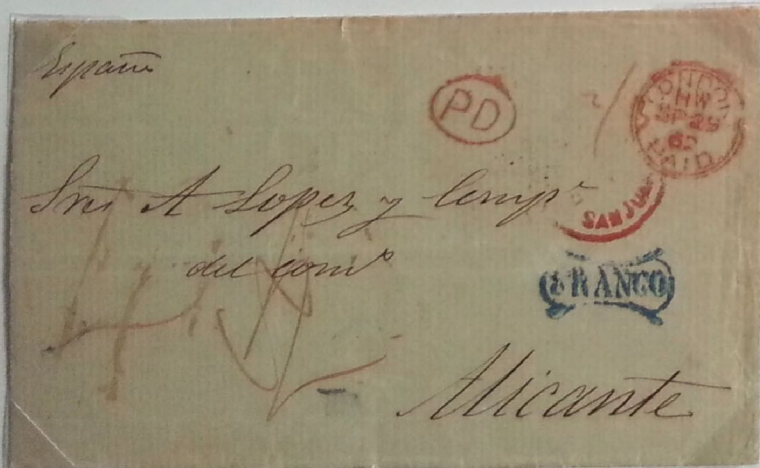 España
PD
LONDON
HW
SP 29
PAID
Sres A Lopez y Compª
SAN JUA
del comº
FRANCO
Alicante